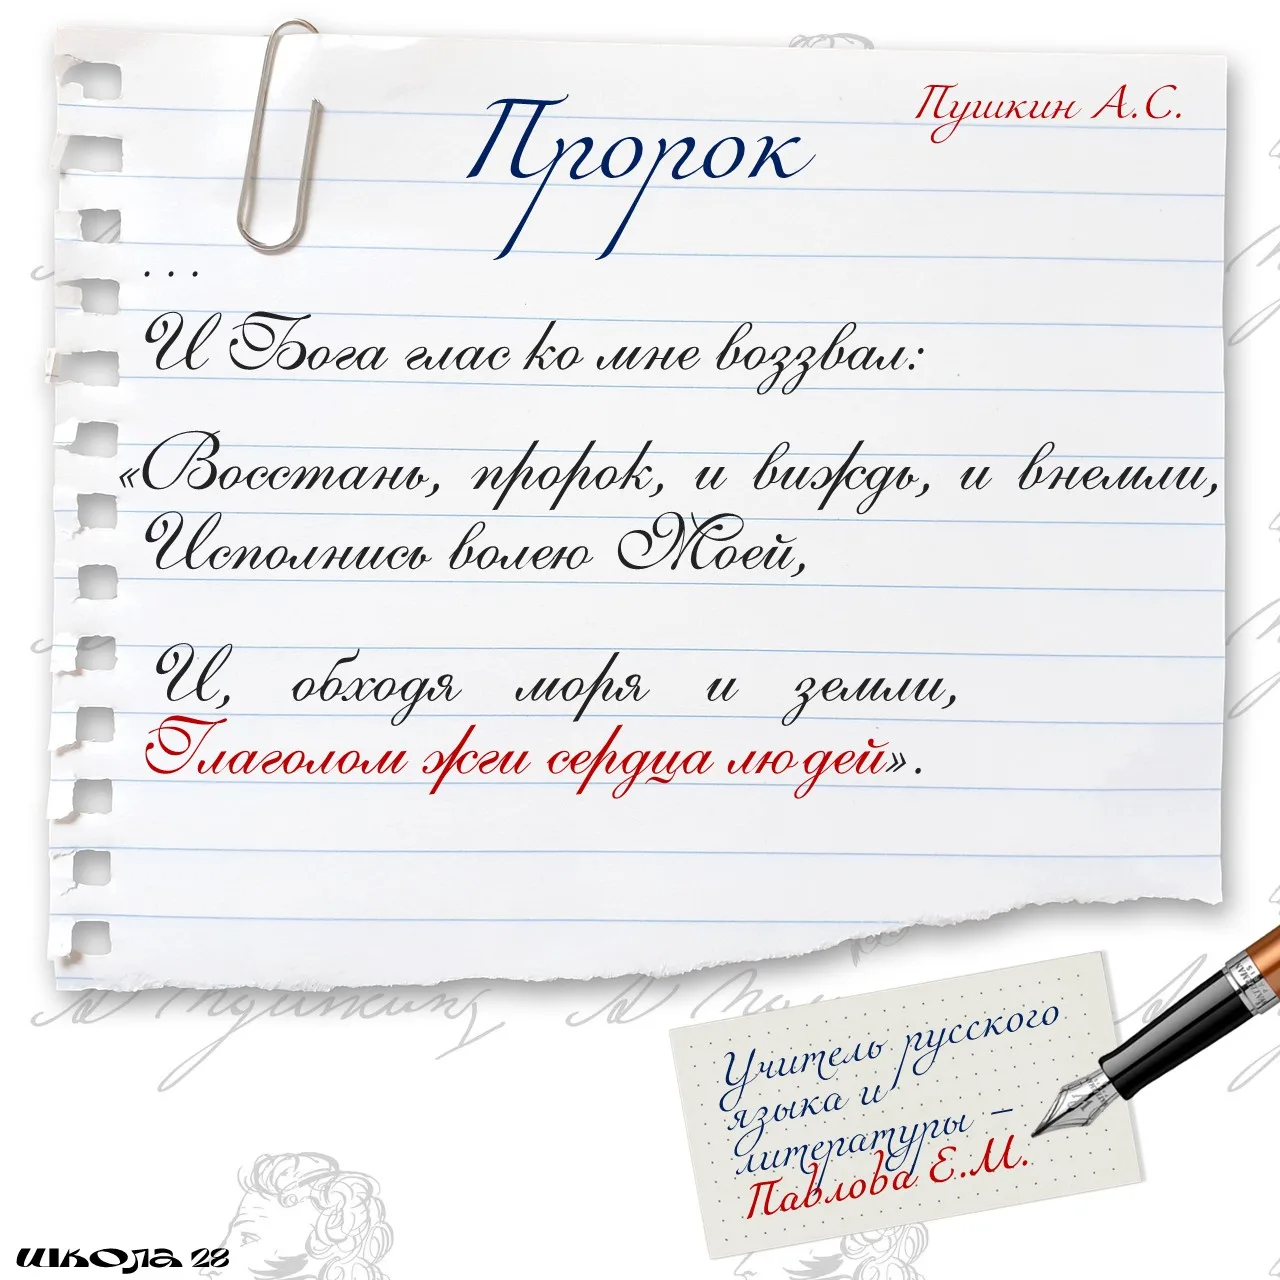 Пушкин А.С.
Пророк
...
И Бога глас ко мне воззвал:
«Восстань, пророк, и виждь, и внемли,
Исполнись волею Моей,
И, обходя моря и земли,
Глаголом жги сердца людей».
Учитель русского
языка и
литературы –
Павлова Е.М.
школа 28